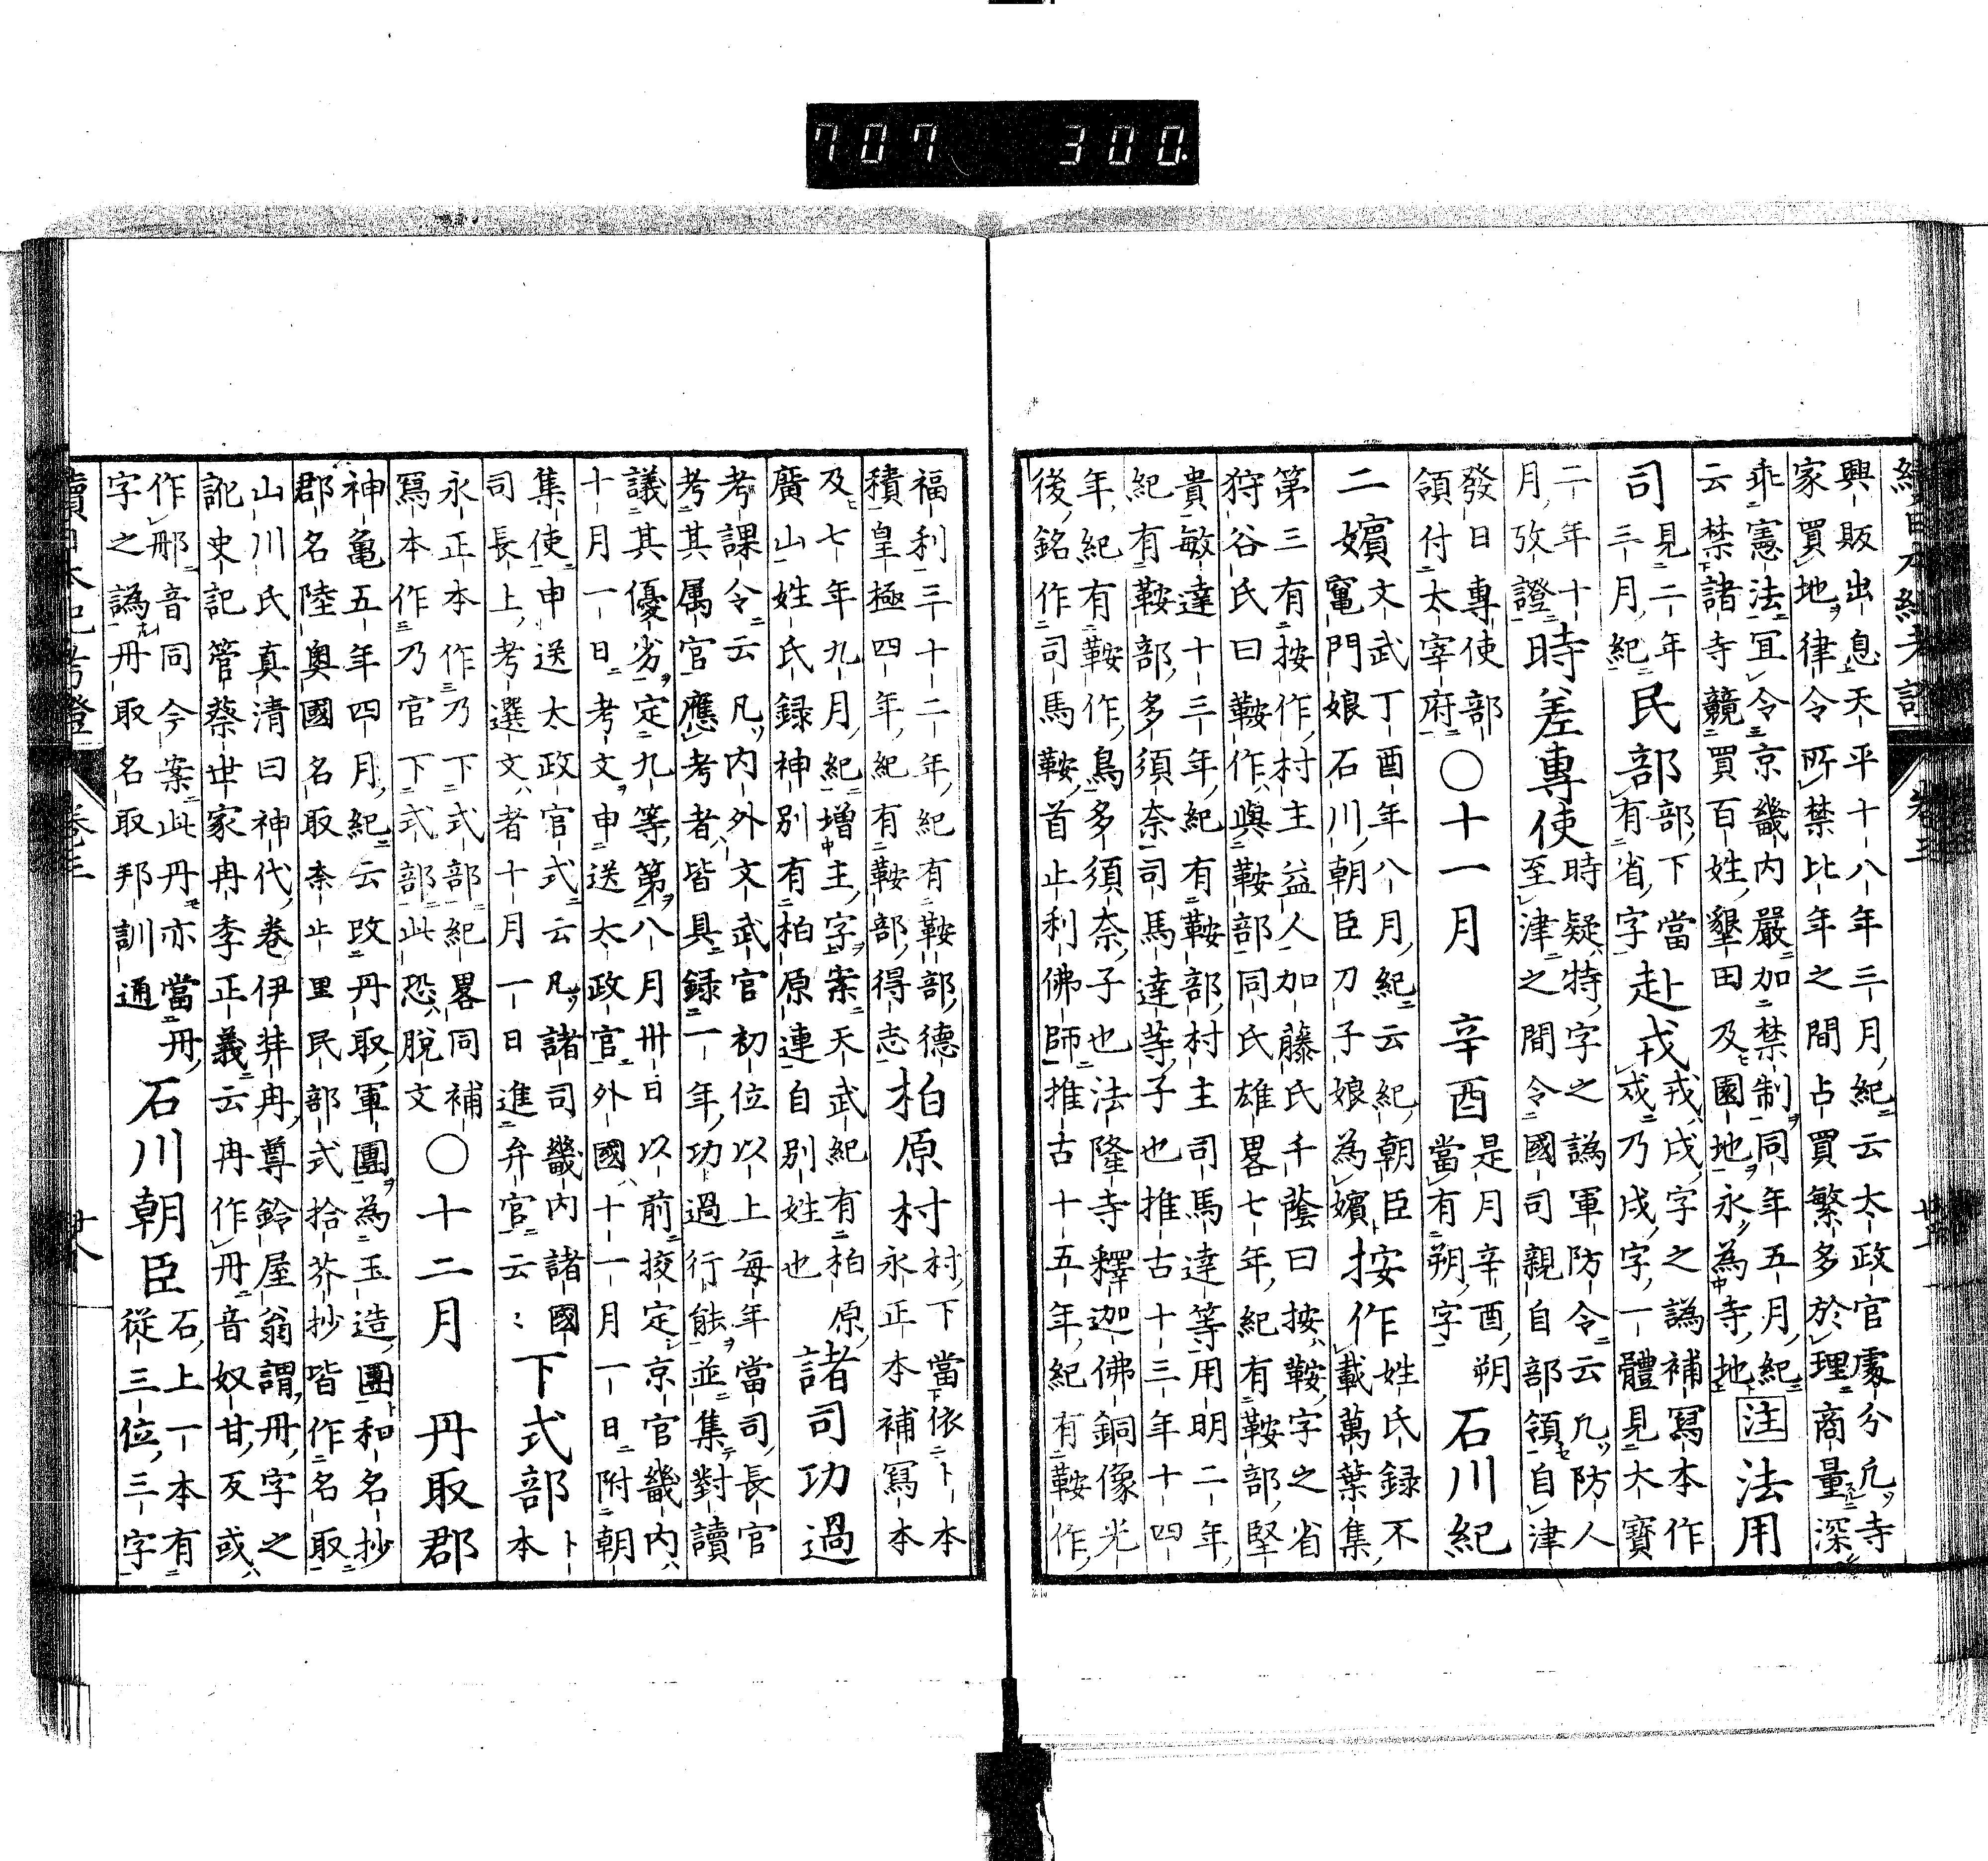 707 300.
續日本紀考證 卷三
興販出息、天平十八年三月、紀云太政官處分凡寺
家買地律令所禁比年之間占買繁多於理商量深
乖憲法宜令京畿内嚴加禁制同年五月、紀
云禁諸寺競買百姓墾田及園地永為寺地 注 法用
司 見二年三月、紀 民部 部、下當有省字 赴戎 戎、戌、字之譌補寫本作戏乃戌字一體見大寳
二年十月、攷證 時差專使 時疑、特、字之譌軍防令云凡防人至津之間令國司親自部領自津
發日專使部領付太宰府 〇十一月 辛酉 是月辛酉朔當有朔字 石川紀
二嬪 文武丁酉年八月、紀云紀、朝臣竃門娘石川、朝臣刀子娘為嬪 按作 姓氏録不載萬葉集、
第三有按作、村主益人加藤氏千蔭曰按、鞍、字之省
狩谷氏曰鞍作、與鞍部同氏雄畧七年、紀有鞍部、堅
貴敏達十三年、紀有鞍部、村主司馬達等用明二年、
紀有鞍部、多須奈司馬達等、子也推古十三年十四
年、紀有鞍作、鳥多須奈、子也法隆寺釋迦佛銅像光
後、銘作司馬鞍、首止利佛師推古十五年、紀有鞍作、
福利三十二年、紀有鞍部、德積皇極四年、紀有鞍部、得志 柏原村 村、下當依卜本永正本補寫本
及七年九月、紀増主、字案天武紀有柏原、廣山姓氏録神別有柏原連自別姓也 諸司功過
考課令云凡内外文武官初位以上每年當司、長官
考其属官應考者、皆具録一年、功過行能並集對讀
議其優劣定九等、第八月卅日以前挍定京官畿内、
十月一日考文申送太政官外國、十一月一日附朝
集使申送太政官式云凡諸司畿内諸國
司長上、考選文、者十月一日進弁官云〻 下式部 卜本
永正本作乃下式部紀畧同補寫本作乃官下式部此恐脱文 〇十二月 丹取郡
神龜五年四月、紀云改丹取、軍團為玉造、團和名抄
郡名陸奥國名取奈止里民部式拾芥抄皆作名取
山川氏真清曰神代、卷伊弉冉、尊鈴屋翁謂冉、字之
訛史記管蔡世家冉季正義云冉作丹音奴甘、反或、
作邢音同今案此丹亦當冉、字之譌冉取名取邦訓通 石川朝臣 石、上一本有從三位、三字
續日本紀考證 卷三 廿八